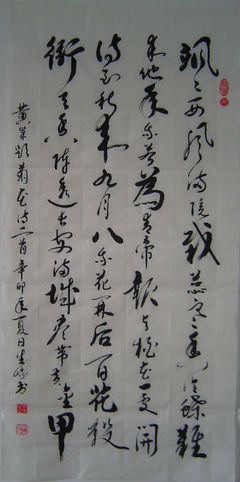 飒〻西风满院栽蕊寒香冷蝶難
来他年我若為青帝報与桃花一处開
待到秋来九月八我花开后百花殺
衝天香阵透长安满城尽带黄金甲
黄巢题菊花诗二首辛卯年夏日生书